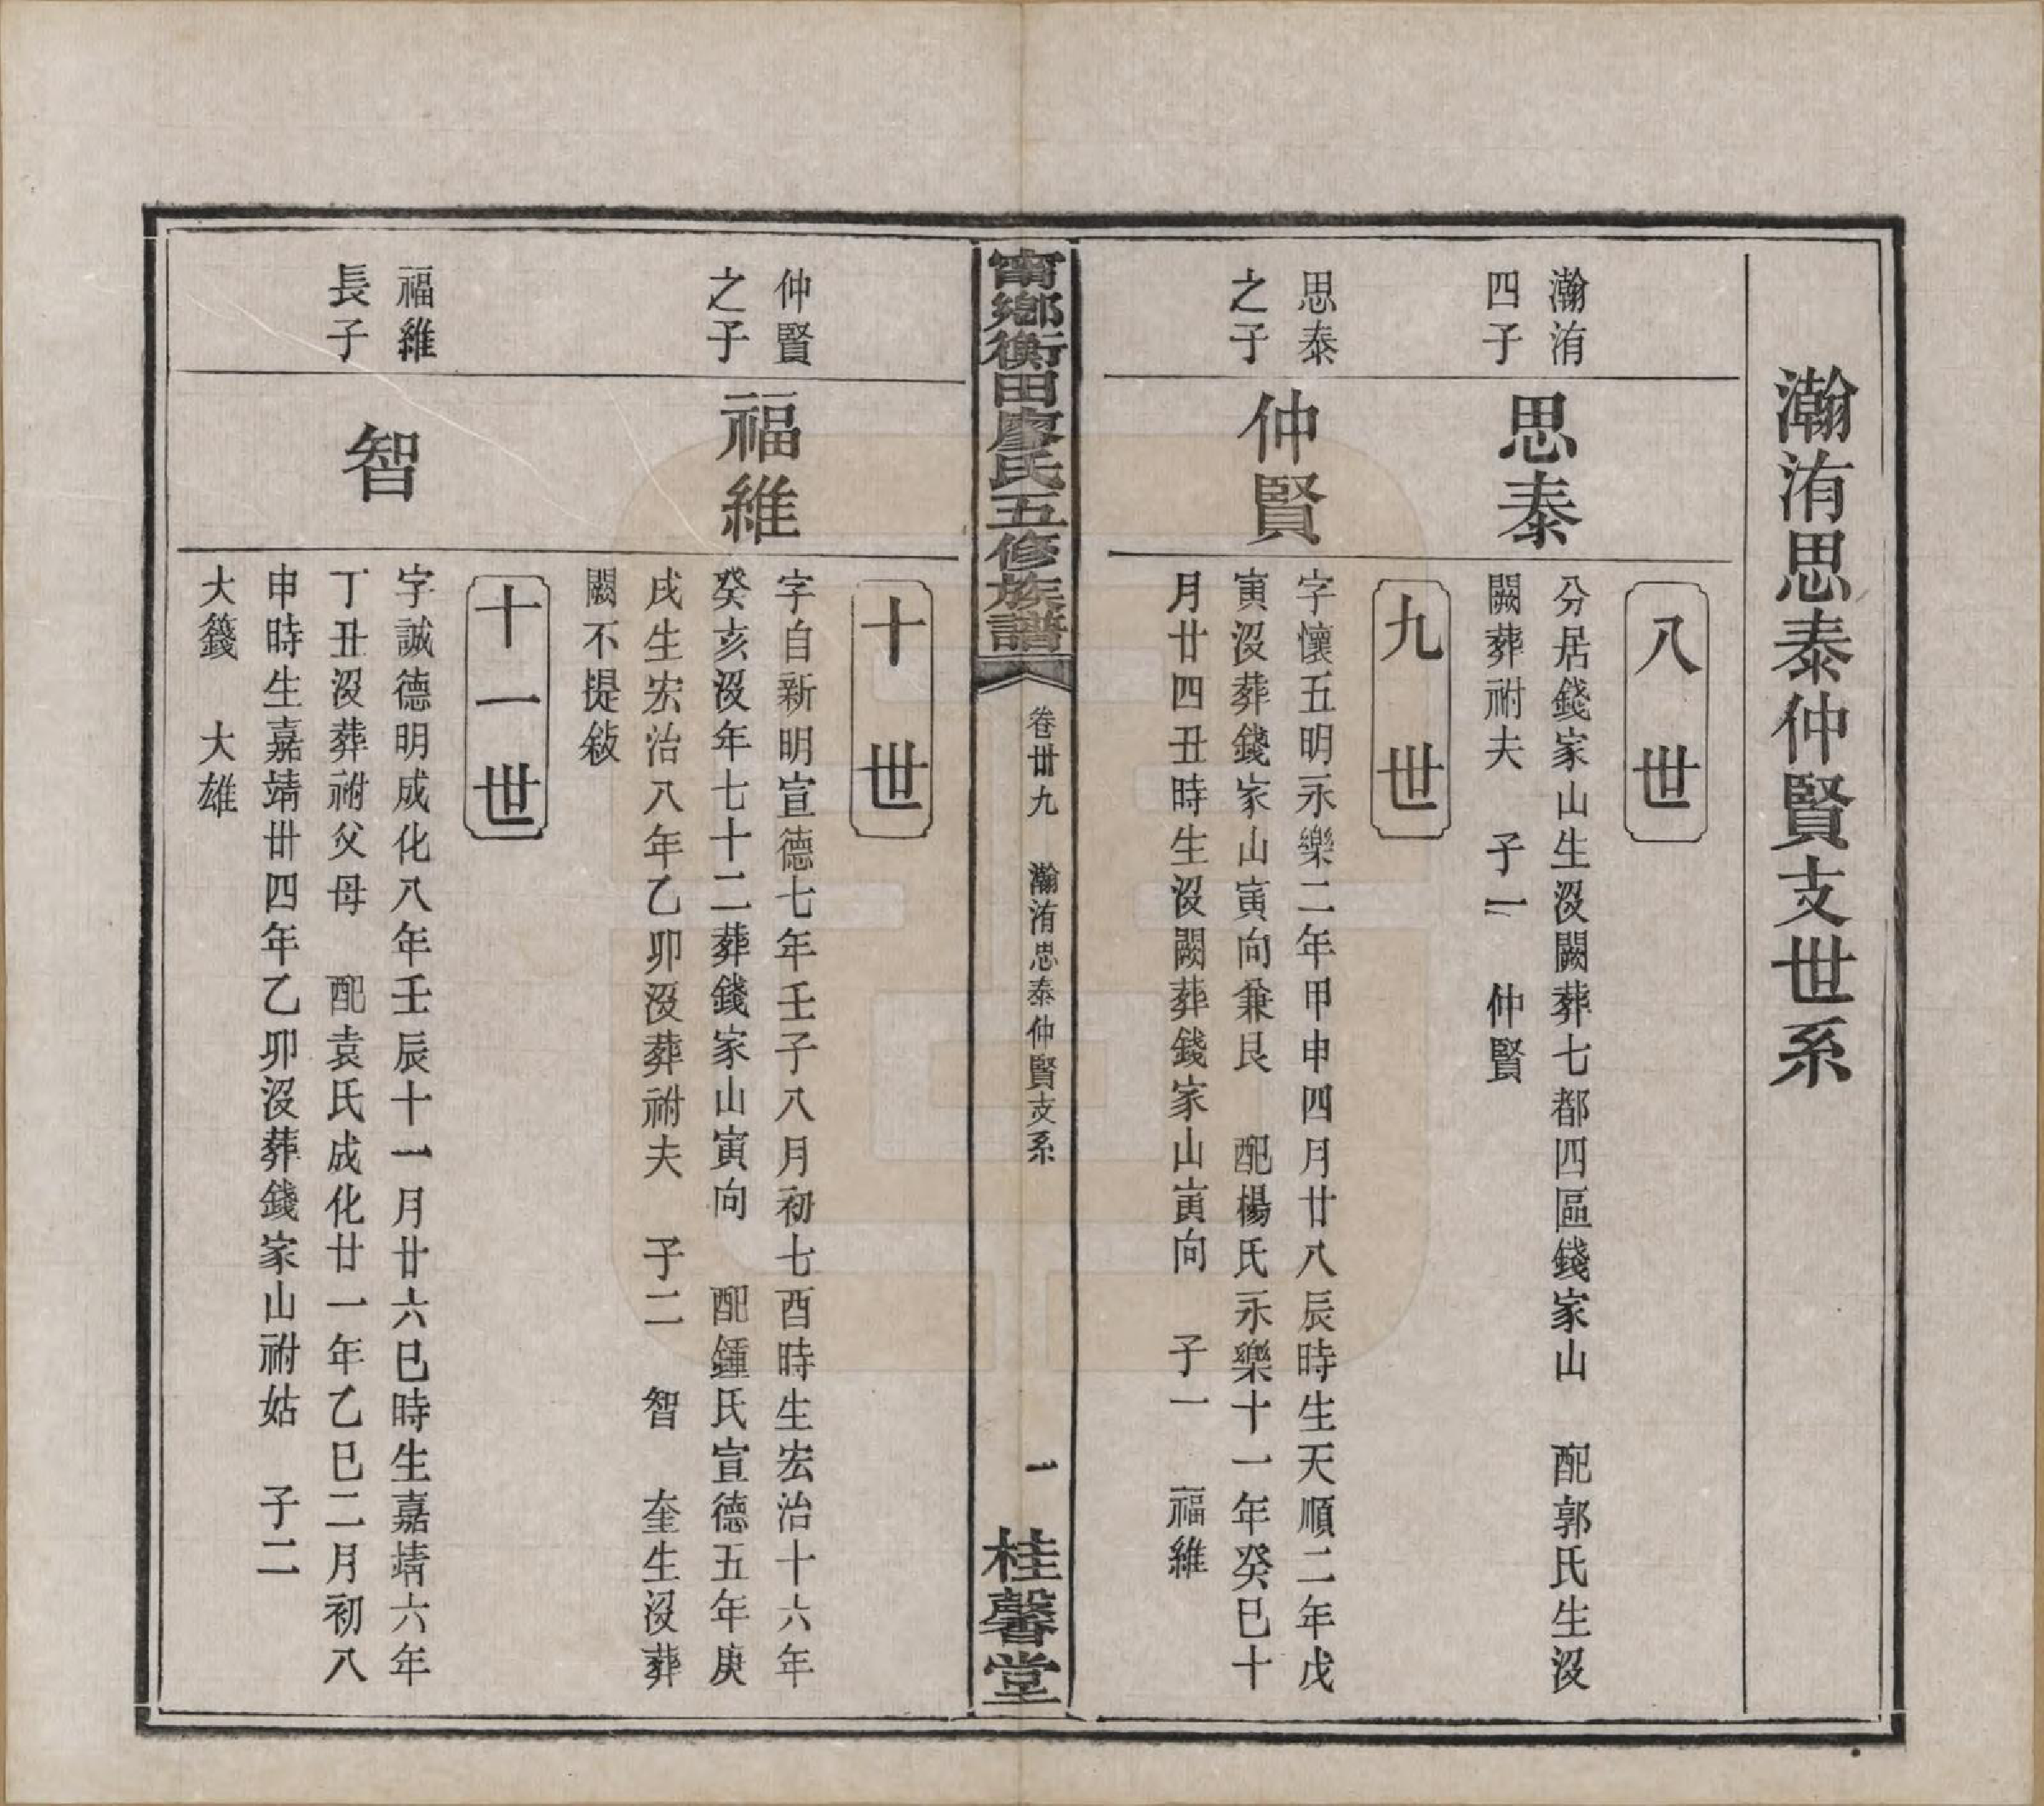 瀚洧思泰仲賢支世系
八世
瀚洧
四子
思泰
分居錢家山生沒闕葬七都四區錢家山　配郭氏生沒
闕葬祔夫　子一　仲賢
九世
思泰
之子
仲賢
字懷五明永樂二年甲申四月廿八辰時生天順二年戊
寅沒葬錢家山寅向兼艮　配楊氏永樂十一年癸巳十
月廿四丑時生沒闕葬錢家山寅向　子一　福維
甯鄉衡田廖氏五修族譜
卷卅九　瀚洧思泰仲賢支系
一
桂馨堂
十世
仲賢
之子
福維
字自新明宣德七年壬子八月初七酉時生宏治十六年
癸亥沒年七十二葬錢家山寅向　配鍾氏宣德五年庚
戌生宏治八年乙卯沒葬祔夫　子二　智　奎生沒葬
闕不提敍
十一世
福維
長子
智
字誠德明成化八年壬辰十一月廿六巳時生嘉靖六年
丁丑沒葬祔父母　配袁氏成化廿一年乙巳二月初八
申時生嘉靖卅四年乙卯沒葬錢家山祔姑　子二
大籛　大雄